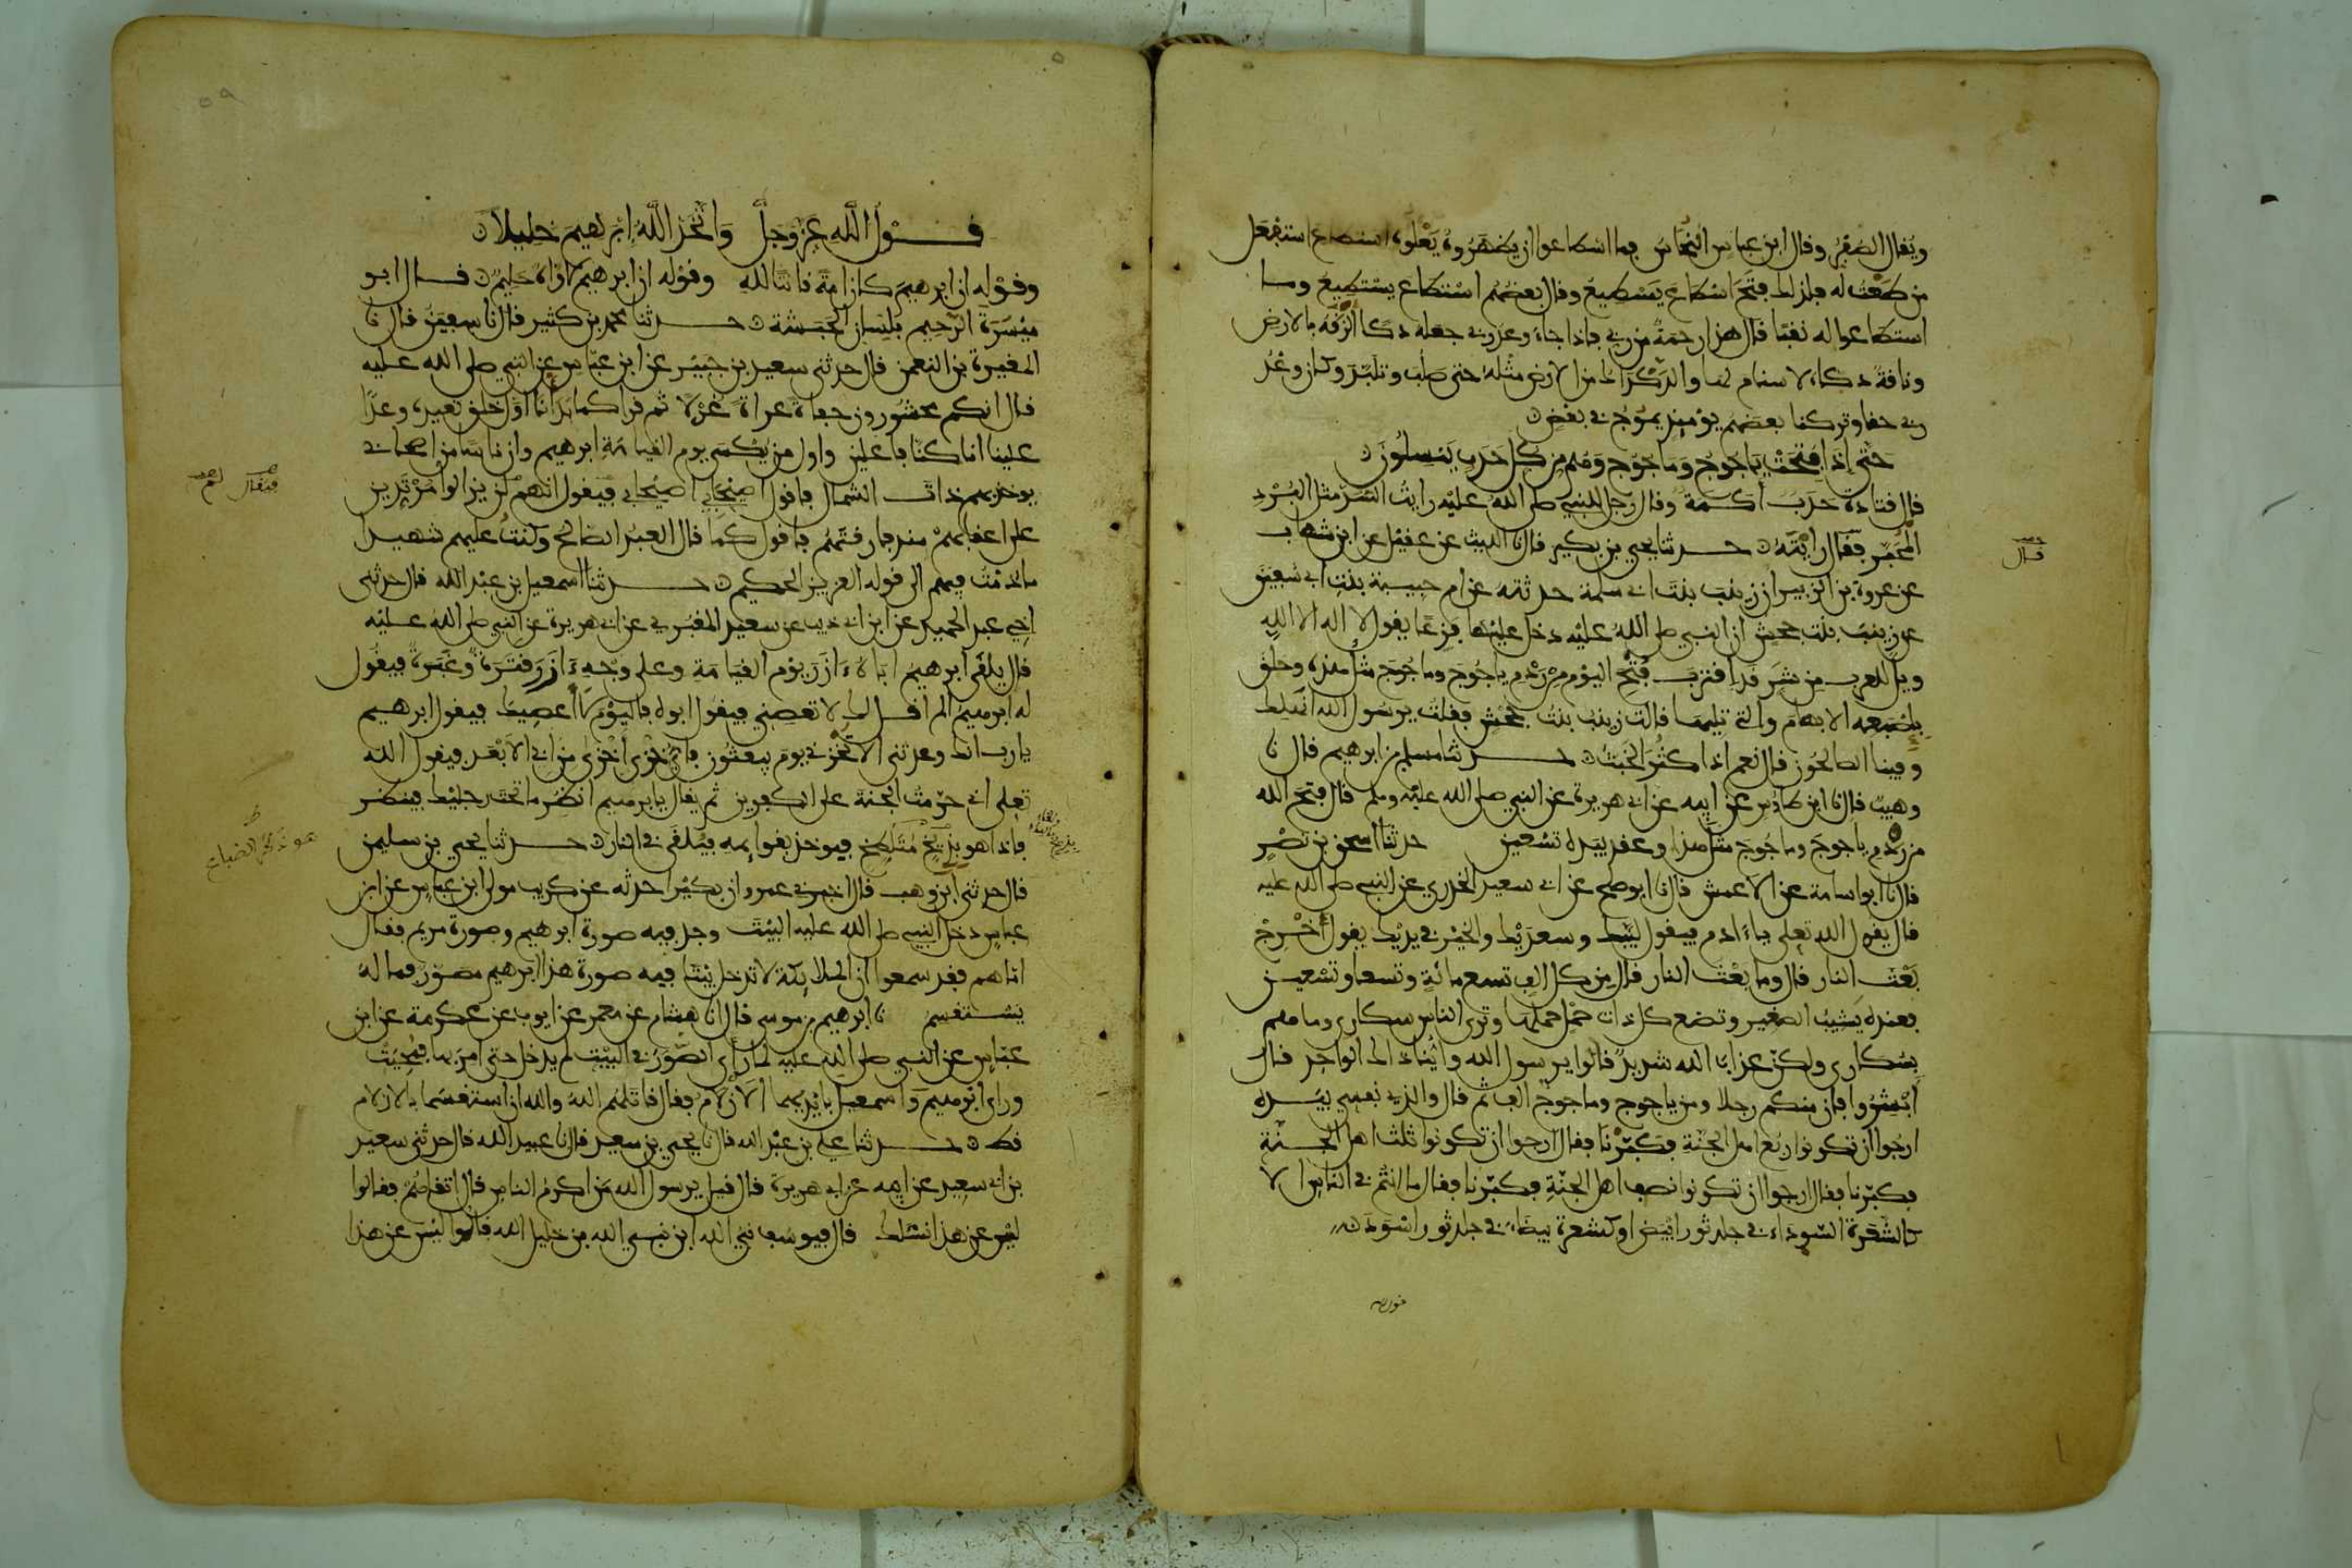 ويقال الصفر وقال ابن عباس النحاس فما اسطاعوا ان يظهروه يعلوه استطاع استفعل
من طعت له فلذلك فتح اسطاع يسطيع وقال بعضهم استطاع يستطيع وما
استطاعوا له نقبا قال هذا رحمة من ربي فاذا جاء وعد ربي جعله دكا الزقه بالارض
وناقة دكاء لا سنام لها والدكداك من الارض مثله حتى صلب وتلبد وكان وعد
ربي حقا وتركنا بعضهم يومئذ يموج في بعض
حتى إذا فتحت ياجوج وماجوج وهم من كل حدب ينسلون
قال قتادة حدب اكمة وقال رجل للنبي صلى الله عليه رايت السد مثل البرد
المحبر فقال رايته حدثنا يحيى بن بكير قال نا الليث عن عقيل عن ابن شهاب
عن عروة بن الزبير ان زينب بنت ابي سلمة حدثته عن ام حبيبة بنت ابي سفين
عن زينب بنت جحش ان النبي صلى الله عليه دخل عليها فزعا يقول لا إله الا الله
ويل للعرب من شر قد اقترب فتح اليوم من ردم ياجوج وماجوج مثل هذه وحلق
بإصبعه الابهام والتي تليها قالت زينب بنت جحش فقلت يرسول الله انهلك
وفينا الصالحون قال نعم اذا كثر الخبث حدثنا مسلم بن ابرهيم قال نا
وهيب قال نا ابن طاوس عن ابيه عن ابي هريرة عن النبي صلى الله عليه وسلم قال فتح الله
من ردم ياجوج وماجوج مثل هذا وعقد بيده تسعين حدثنا اسحق بن نصر
قال نا ابو اسامة عن الاعمش قال نا ابو صلح عن ابي سعيد الخدري عن النبي صلى الله عليه
قال يقول الله تعلى يا ءادم فيقول لبيك وسعديك والخير في يديك يقول أخرج
بعث النار قال وما بعث النار قال من كل الف تسع مائة وتسعا وتسعين
فعنده يشيب الصغير وتضع كل ذات حمل حملها وترى الناس سكارى وما هم
بسكارى ولكن عذاب الله شديد قالوا يرسول الله واينا ذاك الواحد قال
أبشروا فان منكم رجلا ومن ياجوج وماجوج الف ثم قال والذي نفسي بيده
ارجوا ان تكونوا ربع اهل الجنة فكبرنا فقال ارجوا ان تكونوا ثلث اهل الجنة
فكبرنا فقال ارجوا ان تكونوا نصف اهل الجنة فكبرنا فقال ما انتم في الناس الا
كالشعرة السوداء في جلد ثور ابيض او كشعرة بيضاء في جلد ثور اسود
قال
قول الله عز وجل واتخذ الله إبرهيم خليلا
وقوله ان ابرهيم كان امة قانتا لله وقوله ان ابرهيم لاواه حليم قال ابو
ميسرة الرحيم بلسان الحبشة حدثنا محمد بن كثير قال نا سفين قال نا
المغيرة بن النعمن قال حدثني سعيد بن جبير عن ابن عباس عن النبي صلى الله عليه
قال انكم محشورون حفاة عراة غرلا ثم قرا كما بدأنا اول خلق نعيده وعدا
علينا انا كنا فاعلين واول من يكسى يوم القيامة ابرهيم وان ناسا من اصحابي
يوخذ بهم ذات الشمال فاقول اصيحابي اصيحابي فيقول انهم لن يزالوا مرتدين
على اعقابهم منذ فارقتهم فاقول كما قال العبد الصالح وكنت عليهم شهيدا
ما دمت فيهم الى قوله العزيز الحكيم حدثنا اسمعيل بن عبد الله قال حدثني
أخي عبد الحميد عن ابن ابي ذيب عن سعيد المقبري عن ابي هريرة عن النبي صلى الله عليه
قال يلقى ابرهيم اباه ءازر يوم القيامة وعلى وجه ءازر قترة وغبرة فيقول
له ابرهيم الم اقل لك لا تعصني فيقول ابوه فاليوم لا اعصيك فيقول ابرهيم
يا رب انك وعدتني الا تخزني يوم يبعثون فاي خزي اخزى من ابي الابعد فيقول الله
تعلى اني حرمت الجنة على الكفرين ثم يقال يابرهيم انظر ما تحت رجليك فينظر
فاذا هو بذيخ متلطخ فيوخذ بقوايمه فيلقى في النار حدثنا يحيى بن سليمن
قال حدثني ابن وهب قال اخبرني عمرو ان بكيرا حدثه عن كريب مولى ابن عباس عن ابن
عباس دخل النبي صلى الله عليه البيت وجد فيه صورة ابرهيم وصورة مريم فقال
اما هم فقد سمعوا ان الملايكة لا تدخل بيتا فيه صورة هذا ابرهيم مصور فما له
يستقسم نا ابرهيم بن موسى قال انا هشام عن معمر عن ايوب عن عكرمة عن ابن
عباس عن النبي صلى الله عليه لما رأى الصور في البيت لم يدخل حتى امر بها فمحيت
وراى ابرهيم واسمعيل بايديهما الازلام فقال قاتلهم الله والله ان استقسما بالازلام
قط حدثنا علي بن عبد الله قال نا يحيى بن سعيد قال نا عبيد الله قال حدثني سعيد
بن ابي سعيد عن ابيه عن ابي هريرة قال قيل يرسول الله من اكرم الناس قال اتقاهم فقالوا
ليس عن هذا نسلك قال فيوسف نبي الله ابن نبي الله بن خليل الله قالوا ليس عن هذا
فيقال
هو ذكر الضباع